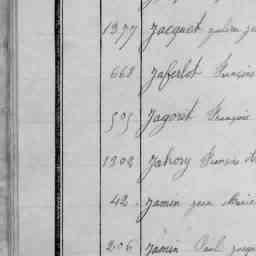 1377 Jacquot
668 Jaferlot François
595 Jagorit François
1302 Jahory François
42. Jamin Jean Marie
206 Jamin Paul